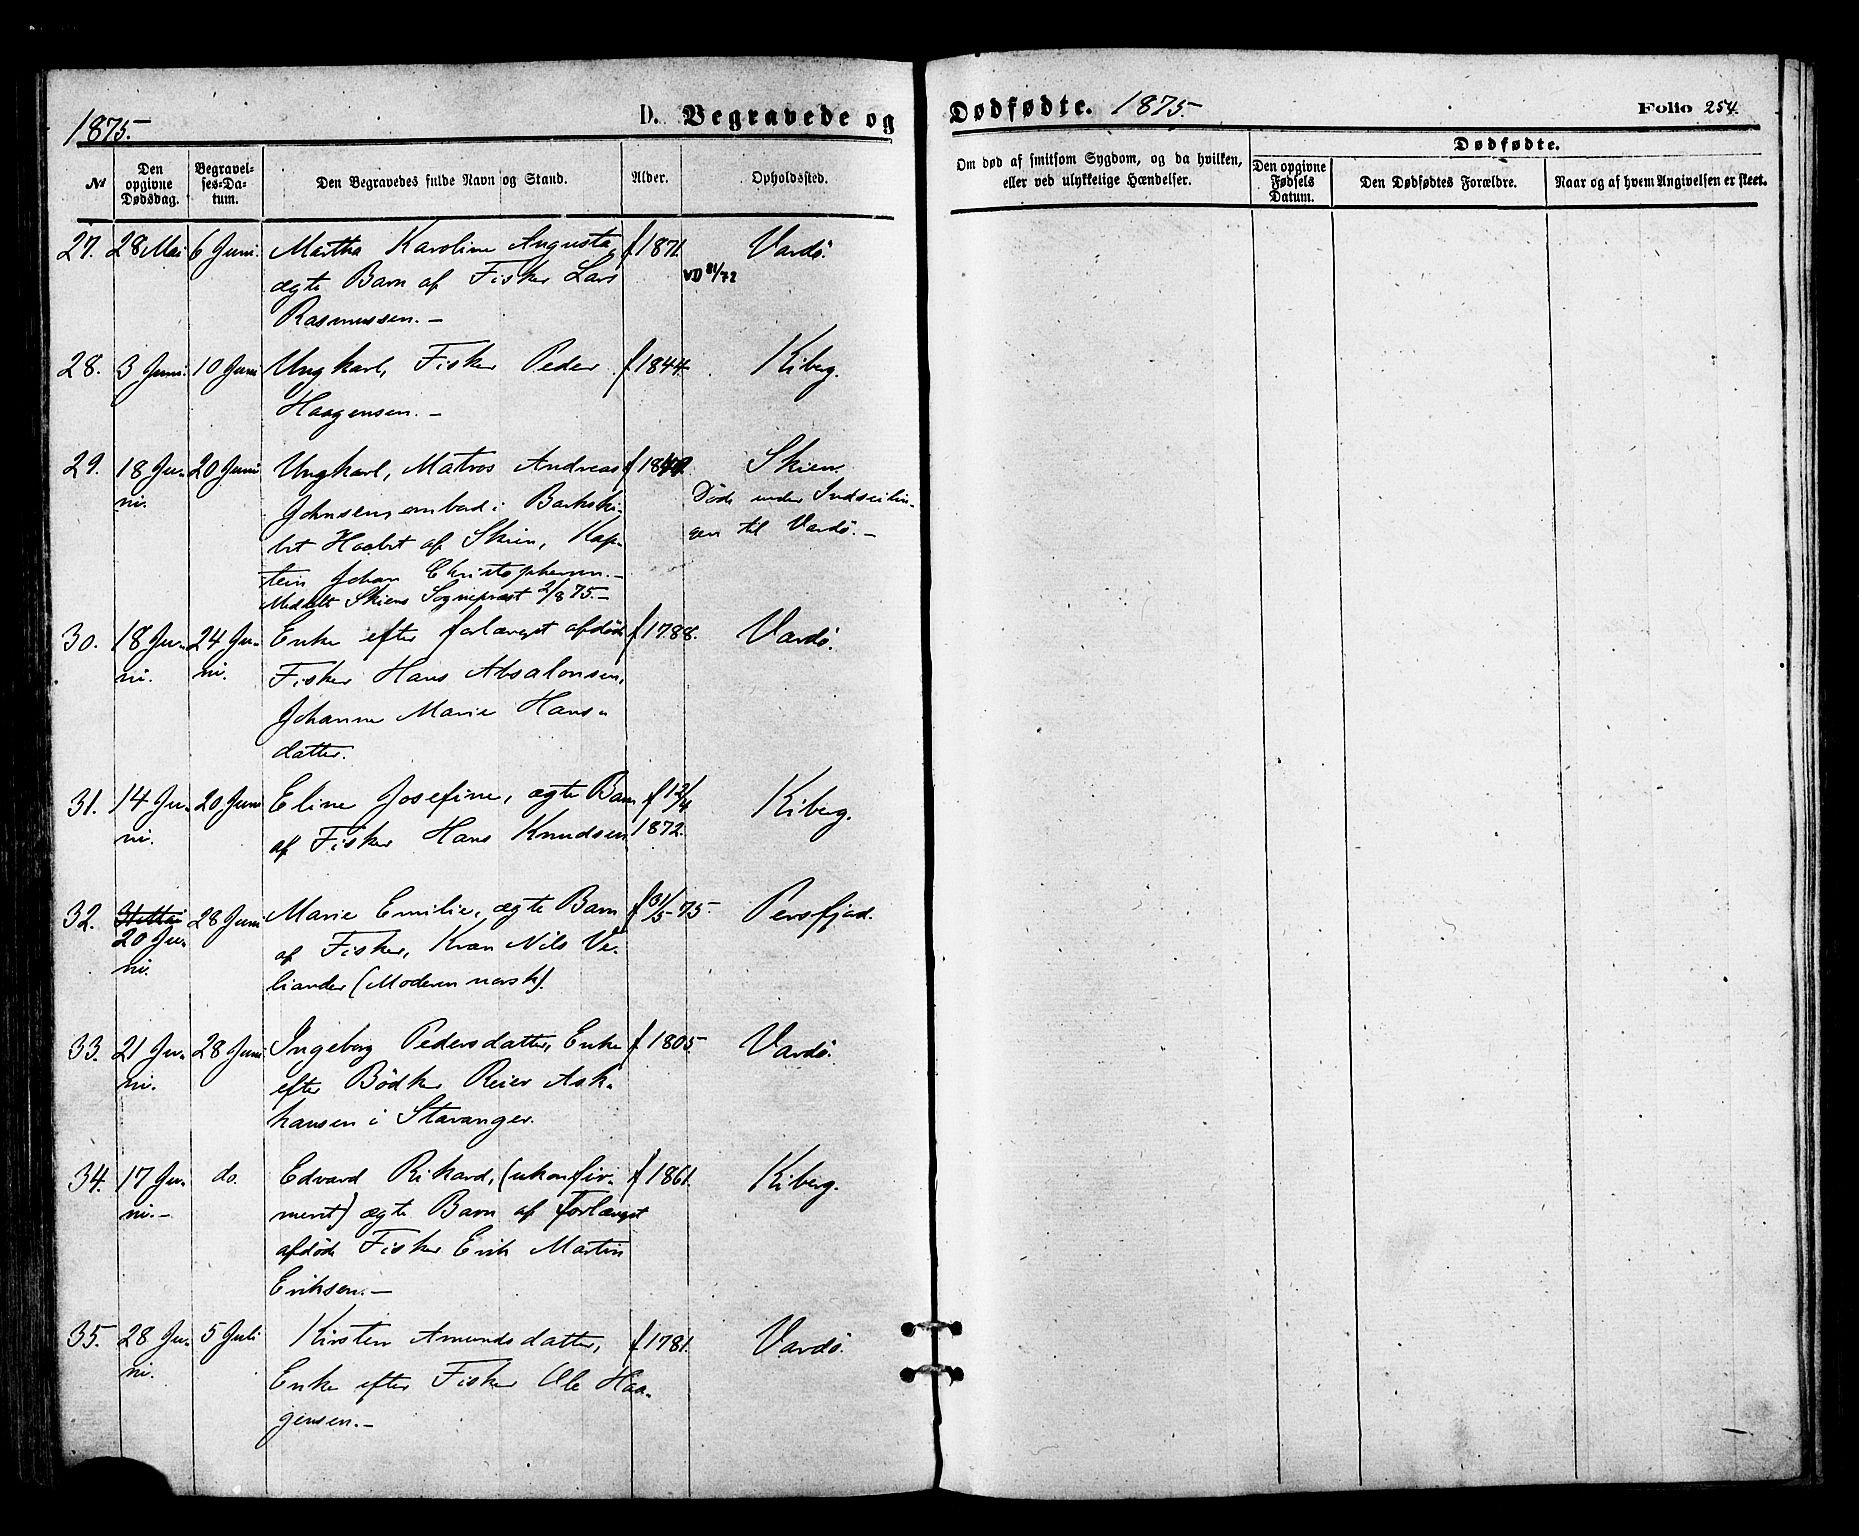 1875.
D. Begravede og
Dødfødte. 1875.
Folio 254.
№
Den opgivne Dødsdag.
Begravelses=Datum.
Den Begravedes fulde Navn og Stand.
Alder.
Opholdssted.
Om død af smitsom Sygdom, og da hvilken,
eller ved ulykkelige Hændelser.
Dødfødte.
Den opgivne Fødsels Datum.
Den Dødfødtes Forældre.
Naar og af hvem Angivelsen er skeet.
27. 28 Mai 6 Juni. Martha Karoline Augusta, f 1871. Vardö.
ægte Barn af Fisker Lars VD 81/72
Rasmussen. —
28. 3 Juni. 10 Juni Ungkarl, Fisker Peder f 1844. Kiberg.
Haagensen. —
29. 18 Ju- 20 Juni Ungkarl, Matros Andreas Skien.
ni. Johnsen, ombord i Barkski- Døde under Indseilin-
bet Haabet af Skien, Kap- gen til Vardö. —
tein Johan Christophersen. —
Meddelt Skiens Sognepræst 2/8 75. —
30. 18 Ju- 24 Ju- Enke efter forlængst afdöde f 1788. Vardö.
ni. ni. Fisker Hans Absalonsen,
Johanne Marie Hans-
datter.
31. 14 Ju- 20 Juni Eline Josefine, ægte Barn f 12/4 Kiberg.
ni. af Fisker Hans Knudsen 1872.
32. 31 Mai 28 Juni Marie Emilie, ægte Barn f 31/5 75. Persfjord.
20 Ju- af Fisker, Kvæn Nils Ve-
ni. liander (Moderen norsk).
33. 21 Ju- 28 Juni Ingeborg Pedersdatter, Enke f 1805. Vardö.
ni. efter Bödker Reier Ask-
hansen i Stavanger.
34. 17 Ju- do. Edvard Rikard, (ukonfir- f 1861. Kiberg.
ni. — meret) ægte Barn af forlængst
afdöde Fisker Erik Martin
Eriksen. —
35. 28 Ju- 5 Juli Kirsten Amundsdatter, f 1781. Vardö.
ni. Enke efter Fisker Ole Haa-
gensen. —